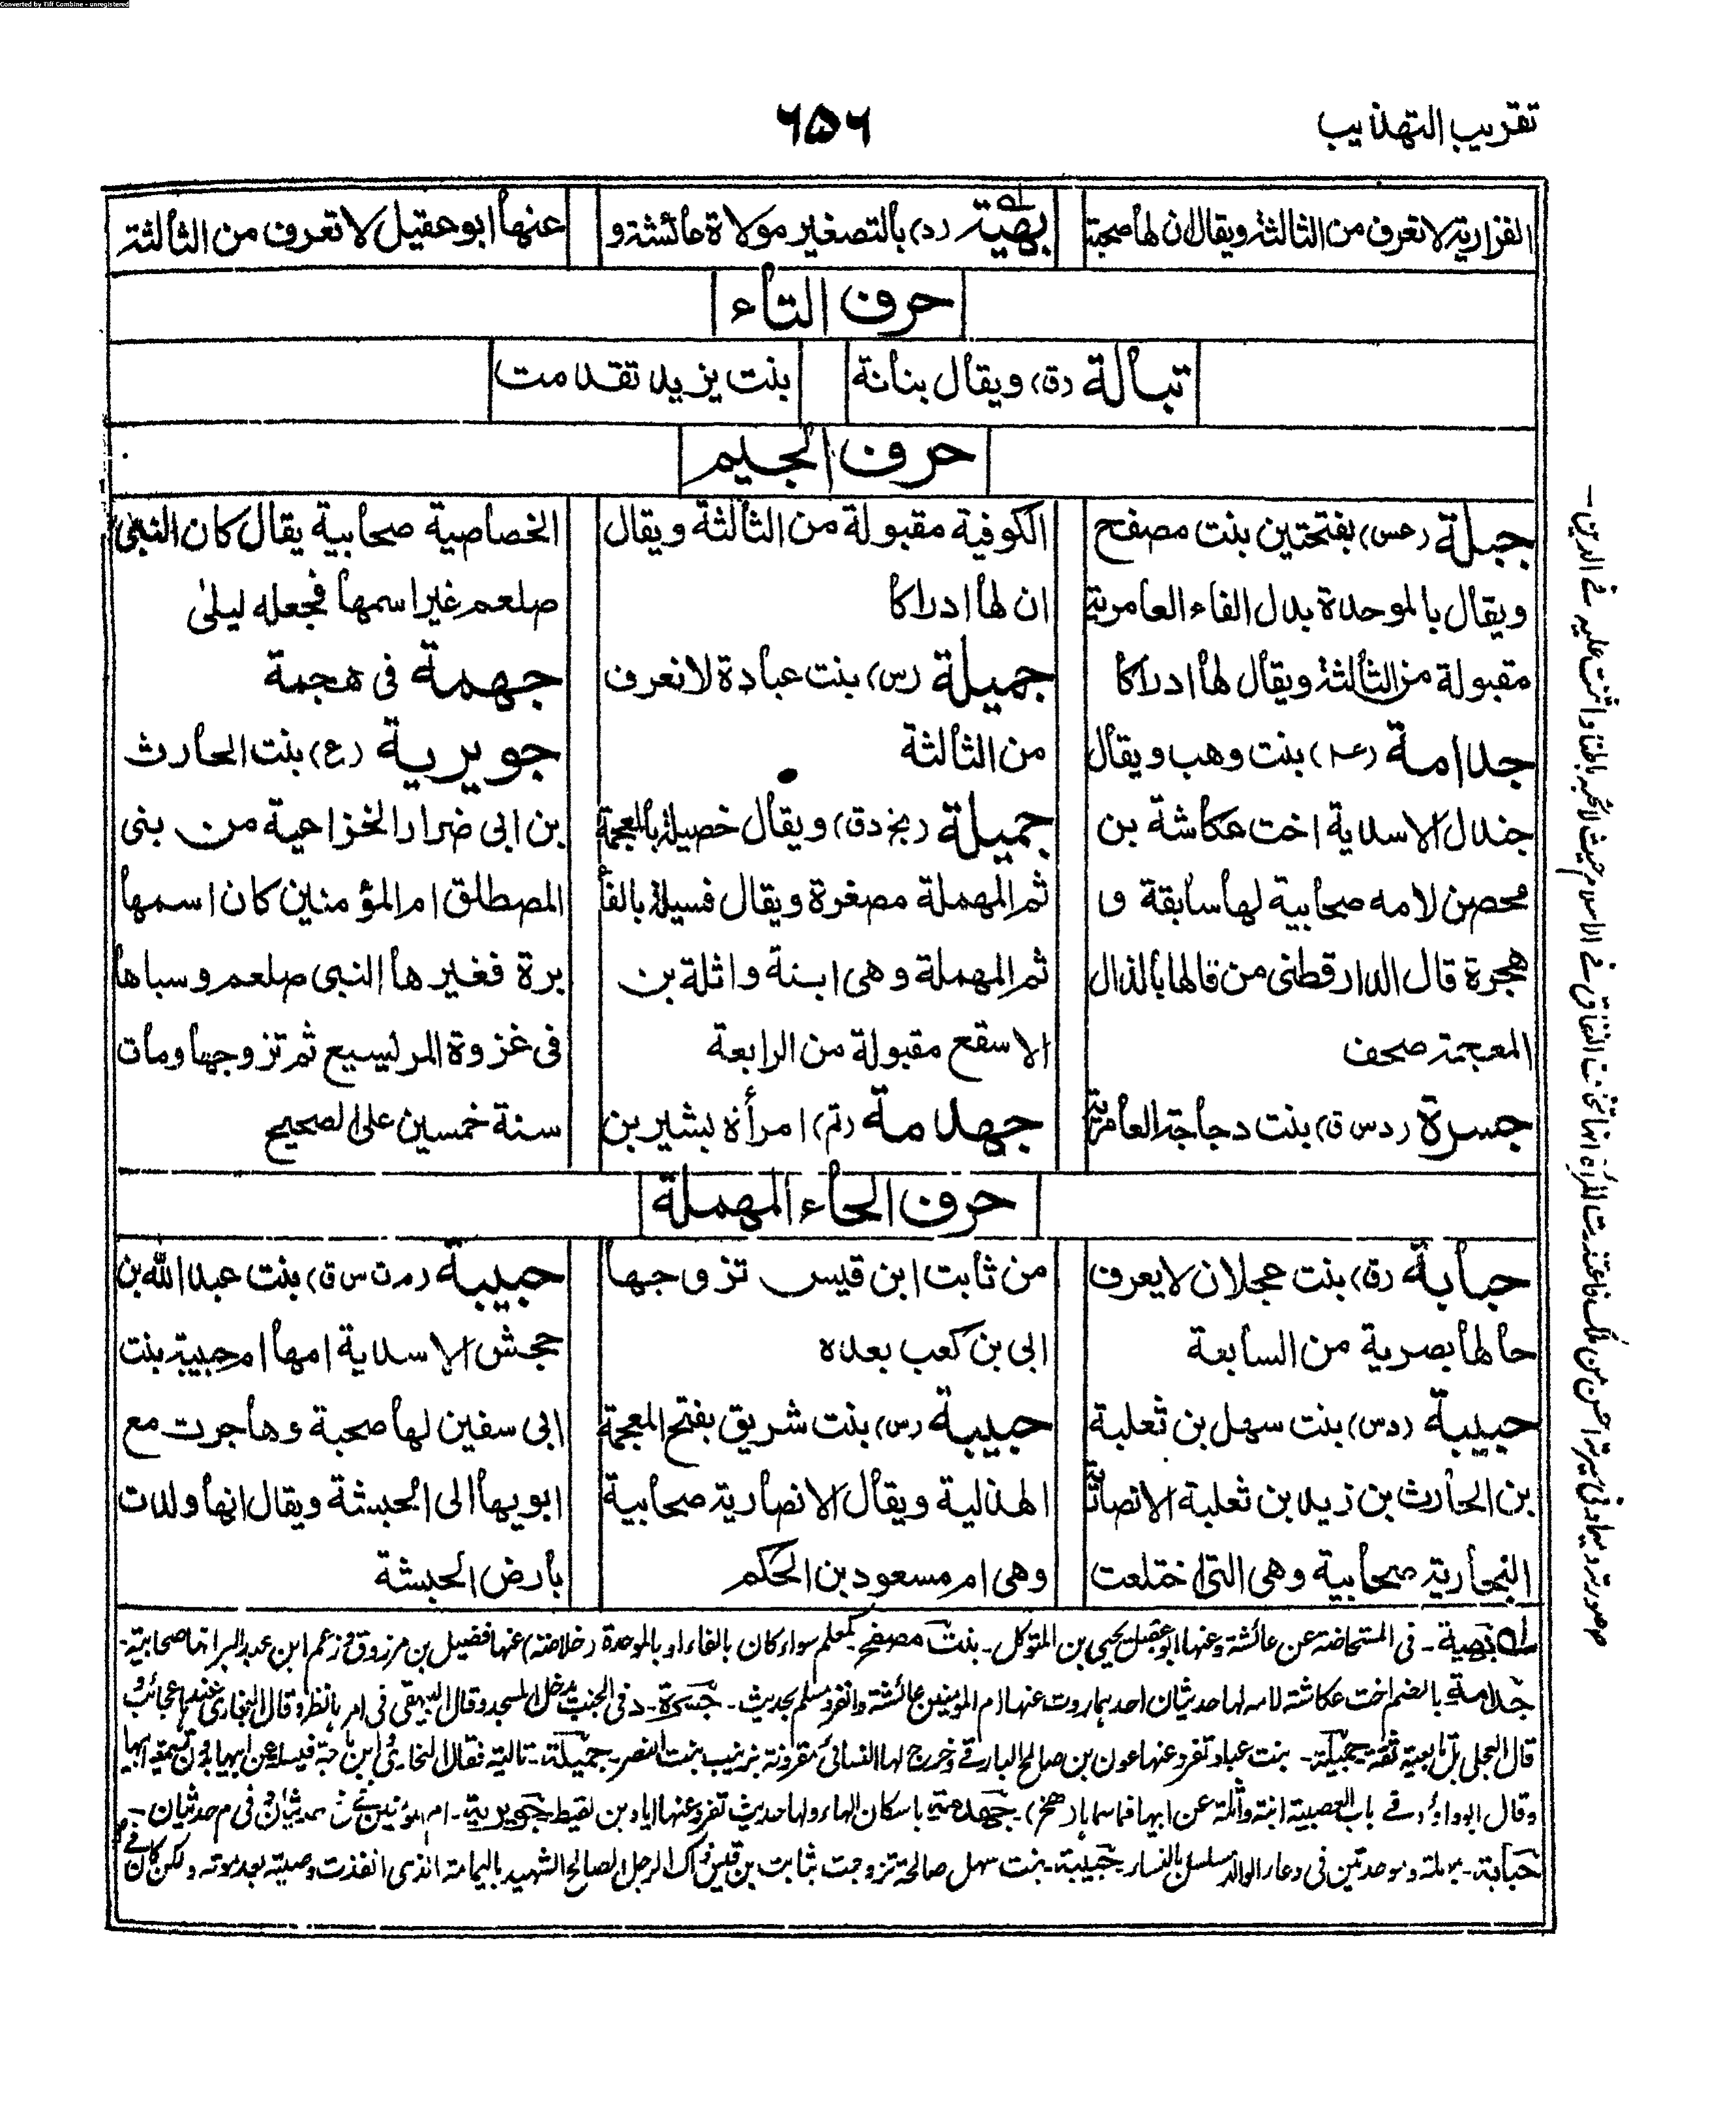 Converted by Tiff Combine - unregistered
تقريب التهذيب
٦٥٦
الفزارية لا تعرف من الثالثة ويقال ان لها صحبة
بهية (د) بالتصغير مولاة عائشة و
عنها ابو عقيل لا تعرف من الثالثة
حرف التاء
تبالة (ق) ويقال بنانة
بنت يزيد تقدمت
حرف الجيم
جبلة (عس) بفتحتين بنت مصفح
ويقال بالموحدة بدل الفاء العامرية
مقبولة من الثالثة ويقال لها ادراكا
جدامة (عه) بنت وهب ويقال
جندل الاسدية اخت عكاشة بن
محصن لامه صحابية لها سابقة و
هجرة قال الدارقطنى من قالها بالذال
المعجمة صحف
جسرة (د س ق) بنت دجاجة العامرية
الكوفية مقبولة من الثالثة ويقال
ان لها ادراكا
جميلة (س) بنت عبادة لا تعرف
من الثالثة
جميلة (بخ د ق) ويقال خصيلة بالمعجمة
ثم المهملة مصغرة ويقال فسيلة بالفاء
ثم المهملة وهى ابنة واثلة بن
الاسقع مقبولة من الرابعة
جهدمة (تم) امرأة بشير بن
الخصاصية صحابية يقال كان النبى
صلعم غير اسمها فجعله ليلى
جهمة فى هجيمة
جويرية (ع) بنت الحارث
بن ابى ضرار الخزاعية من بنى
المصطلق ام المؤمنين كان اسمها
برة فغيرها النبى صلعم وسباها
فى غزوة المريسيع ثم تزوجها وماتت
سنة خمسين على الصحيح
حرف الحاء المهملة
حبابة (ق) بنت عجلان لا يعرف
حالها بصرية من السابعة
حبيبة (د س) بنت سهل بن ثعلبة
بن الحارث بن زيد بن ثعلبة الانصارية
النجارية صحابية وهى التى اختلعت
من ثابت ابن قيس تزوجها
ابى بن كعب بعده
حبيبة (س) بنت شريق بفتح المعجمة
الهذلية ويقال الانصارية صحابية
وهى ام مسعود بن الحكم
حبيبة (م ت س ق) بنت عبد الله بن
جحش الاسدية امها ام حبيبة بنت
ابى سفين لها صحبة وهاجرت مع
ابويها الى الحبشة ويقال انها ولدت
بأرض الحبشة
بهية - فى المستحاضة عن عائشة وعنها ابو عقيل يحيى بن المتوكل - بنت مصفح كمعلم سواء كان بالفاء او بالموحدة (خلاصة) عنها فضيل بن مرزوق وزعم ابن عبد البر انها صحابية -
جدامة بالضم اخت عكاشة لامه لها حديثان احدهما روت عنها ام المؤمنين عائشة وانفرد مسلم بحديث - جسرة - د فى الجنب يدخل المسجد وقال البيهقى وقال البخارى عندها عجائب و
قال العجلى تابعية ثقة جميلة - بنت عباد تفرد عنها عون بن صالح البارقى وخرج لها النسائى مقرونة بزينب بنت النصر - جميلة
وقال ابو داود فى باب العصبية ابنة واثلة عن ابيها - جهدمة باسكان الهاء ولها حديث تفرد عنها اياد بن لقيط جويرية - ام المؤمنين
حبابة - بمهملة وموحدتين فى دعاء الوالد مسلسل بالنساء - حبيبة - بنت سهل صالحة تزوجت ثابت بن قيس ذاك الرجل الصالح الشهيد باليمامة الذى انفذت وصيته بعد موته ولكن كان فى